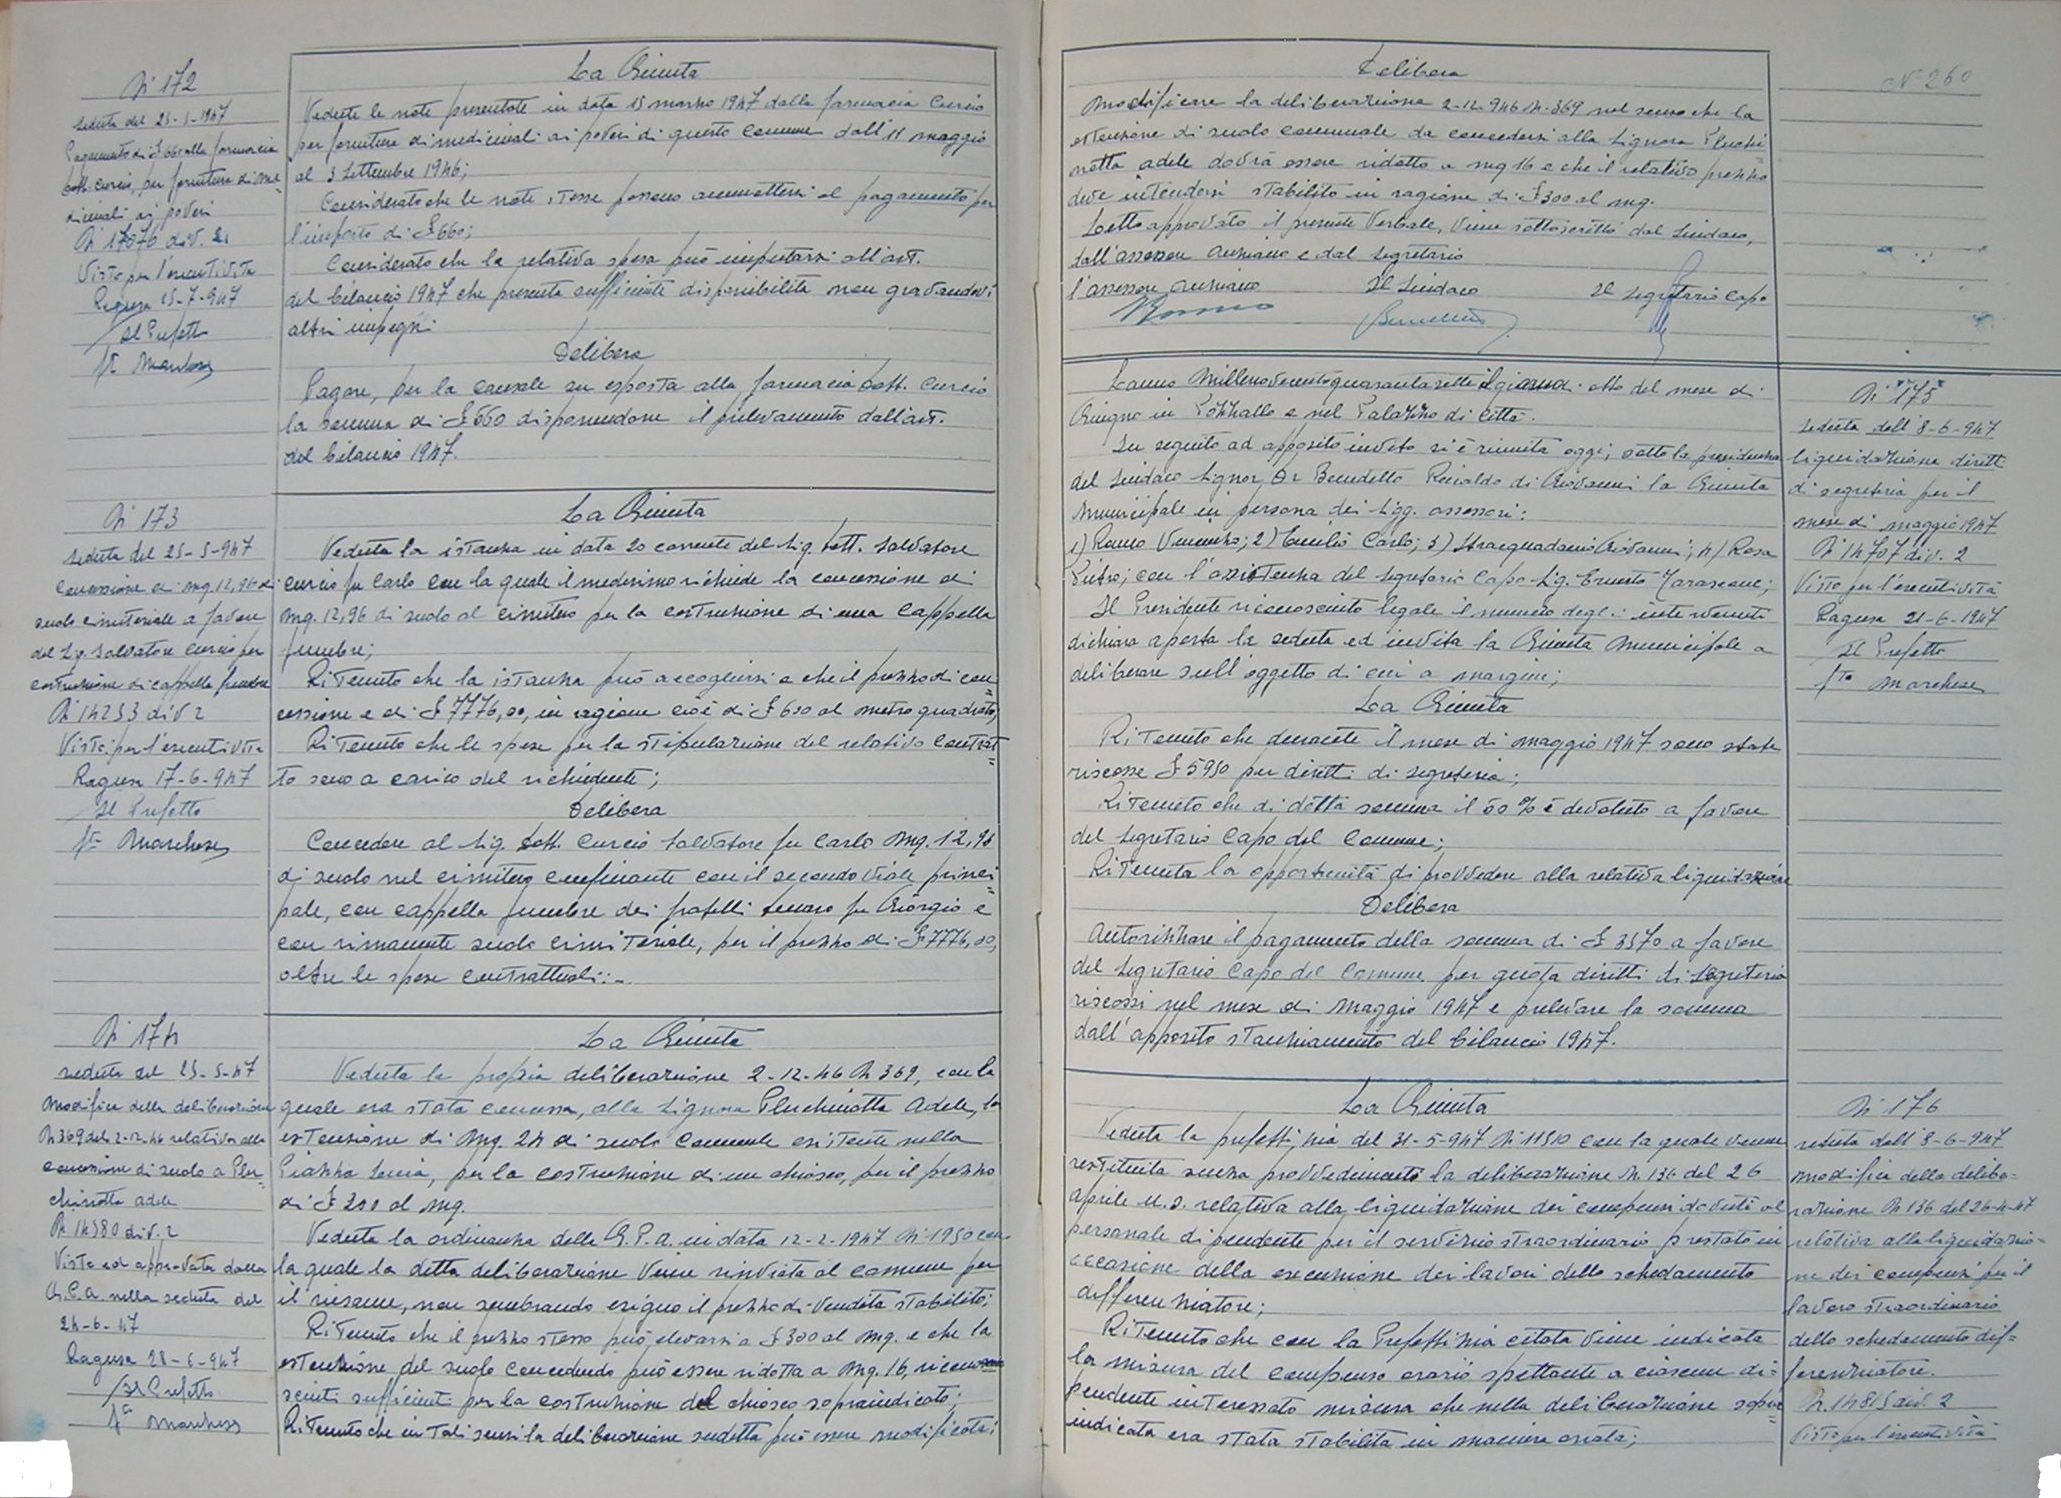 N° 172
seduta del 25-5-1947
Pagamento di £ 660 alla farmacia
dott. Curcio, per fornitura di me=
dicinali ai poveri
N° 17076 div. 2
Visto per l'esecutività
Ragusa 15-7-947
Il Prefetto
f.to Marchese
La Giunta
Vedute le note presentate in data 15 marzo 1947 dalla farmacia Curcio
per fornitura di medicinali ai poveri di questo comune dall'11 maggio
al 3 settembre 1946;
Considerato che le note stesse possono ammettersi al pagamento per
l'importo di £ 660;
Considerato che la relativa spesa può imputarsi all'art.
del bilancio 1947 che presenta sufficiente disponibilità non gravandovi
altri impegni
Delibera
Pagare, per la causale su esposta alla farmacia Dott. Curcio
la somma di £ 660 disponendone il prelevamento dall'art.
del bilancio 1947.
N° 173
seduta del 25-5-947
Concessione di mq. 12,96 di
suolo cimiteriale a favore
del Sig. Salvatore Curcio per
costruzione di cappella funebre
N° 14253 div. 2
Visto: per l'esecutività
Ragusa 17-6-947
Il Prefetto
f.to Marchese
La Giunta
Veduta la istanza in data 20 corrente del Sig. Dott. Salvatore
Curcio fu Carlo con la quale il medesimo richiede la concessione di
mq. 12,96 di suolo al cimitero per la costruzione di una cappella
funebre;
Ritenuto che la istanza può accogliersi e che il prezzo di con=
cessione e di £ 7776,00, in ragione cioè di £ 600 al metro quadrato,
Ritenuto che le spese per la stipulazione del relativo contrat=
to sono a carico del richiedente;
Delibera
Concedere al Sig. Dott. Curcio Salvatore fu Carlo mq. 12,96
di suolo nel cimitero confinante con il secondo viale princi=
pale, con cappella funebre dei fratelli fu Giorgio e
con rimanente suolo cimiteriale, per il prezzo di £ 7776,00,
oltre le spese contrattuali:-
N° 174
seduta del 25-5-47
Modifica della deliberazione
N 369 del 2-12-46 relativa alla
concessione di suolo a Plu=
chinotta Adele
N 14580 div. 2
Vista ed approvata dalla
G.P.A. nella seduta del
24-6-47
Ragusa 28-6-947
Il Prefetto
f.to Marchese
La Giunta
Veduta la propria deliberazione 2-12-46 N 369, con la
quale era stata concessa, alla Signora Pluchinotta Adele, la
estensione di mq. 24 di suolo comunale esistente nella
Piazza, per la costruzione di un chiosco, per il prezzo
di £ 200 al mq.
Veduta la ordinanza della G.P.A. in data 12-2-1947 N° 1950 con
la quale la detta deliberazione viene rinviata al comune per
il riesame, non sembrando esiguo il prezzo di vendita stabilito;
Ritenuto che il prezzo stesso può elevarsi a £ 300 al mq. e che la
estensione del suolo concedendo può essere ridotta a mq. 16, ricono
sciuti sufficienti per la costruzione del chiosco sopraindicato;
Ritenuto che in tali sensi la deliberazione suddetta può essere modificata;
N° 260
Delibera
Modificare la deliberazione 2-12-946 N. 369 nel senso che la
estensione di suolo comunale da concedersi alla Signora Pluchi
notta Adele dovrà essere ridotta a mq 16 e che il relativo prezzo
deve intendersi stabilito in ragione di £ 300 al mq.
Letto approvato il presente Verbale, viene sottoscritto dal Sindaco,
dall'assessore anziano e dal segretario
l'assessore anziano Il Sindaco Il Segretario Capo
L'anno Millenovecentoquarantasette il giorno di otto del mese di
Giugno in Pozzallo e nel Palazzo di Città.
In seguito ad apposito invito si è riunita oggi, sotto la presidenza
del Sindaco Signor Dr Benedetto Rinaldo di Giovanni la Giunta
Municipale in persona dei Sigg. assessori:
1) Romeo Vincenzo; 2) Emilio Carlo; 3) Stracquadanio Giovanni; 4) Rosa
Pietro; con l'assistenza del Segretario Capo Sig. Ernesto Tarascone;
Il Presidente riconosciuto legale il numero degli intervenuti
dichiara aperta la seduta ed invita la Giunta Municipale a
deliberare sull'oggetto di cui a margine;
N° 175
seduta dell' 8-6-947
liquidazione diritti
di segreteria per il
mese di maggio 1947
N° 14707 div. 2
Visto per l'esecutività
Ragusa 21-6-1947
Il Prefetto
f.to Marchese
La Giunta
Ritenuto che durante il mese di maggio 1947 sono state
riscosse £ 5950 per diritti di segreteria;
Ritenuto che di detta somma il 60 % è devoluto a favore
del segretario capo del Comune;
Ritenuta la opportunità di provvedere alla relativa liquidazione
Delibera
Autorizzare il pagamento della somma di £ 3570 a favore
del Segretario Capo del Comune per quota diritti di segreteria
riscossi nel mese di Maggio 1947 e prelevare la somma
dall'apposito stanziamento del bilancio 1947.
La Giunta
Veduta la prefettizia del 31-5-947 N° 11510 con la quale venne
restituita senza provvedimenti la deliberazione N. 136 del 26
aprile u.s. relativa alla liquidazione dei compensi dovuti al
personale dipendente per il servizio straordinario prestato in
occasione della esecuzione dei lavori dello schedamento
differenziatore;
Ritenuto che con la Prefettizia citata viene indicata
la misura del compenso orario spettante a ciascun di=
pendente interessato misura che nella deliberazione sopra=
indicata era stata stabilita in maniera errata;
N° 176
seduta dell' 8-6-947
Modifica della delibe=
razione N 136 del 26-4-47
relativa alla liquidazio=
ne dei compensi per il
lavoro straordinario
dello schedamento dif=
ferenziatore.
N. 14815 div. 2
Visto per l'esecutività